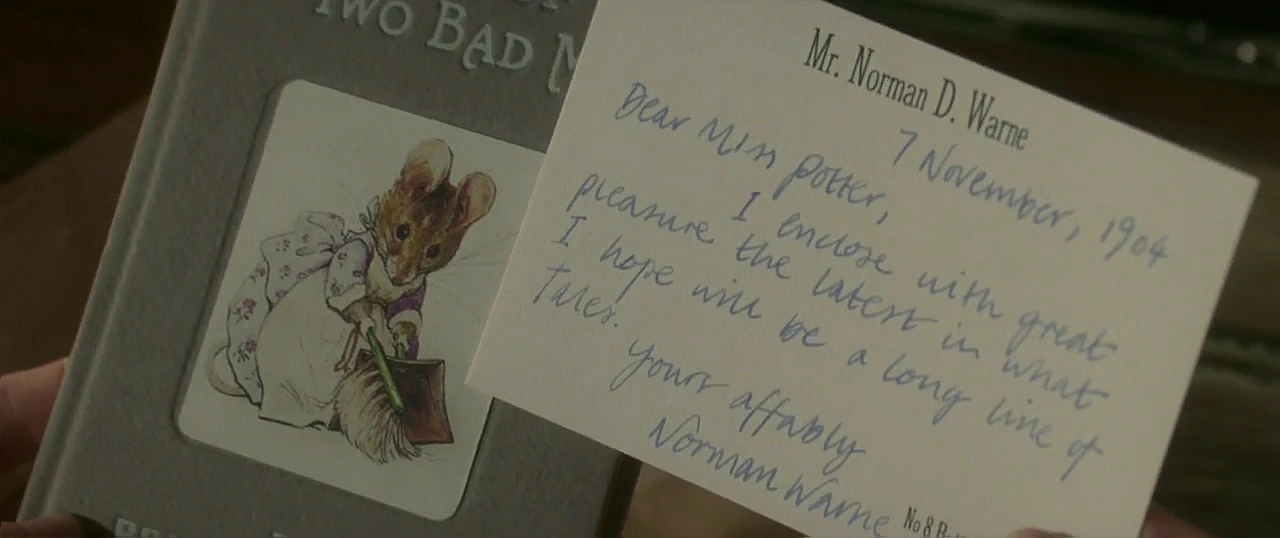 TWO BAD
Mr. Norman D. Warne
7 November, 1904
Dear Miss Potter,
I enclose with great
pleasure the latest in what
I hope will be a long line of
Tales.
Yours affably
Norman Warne
No 8